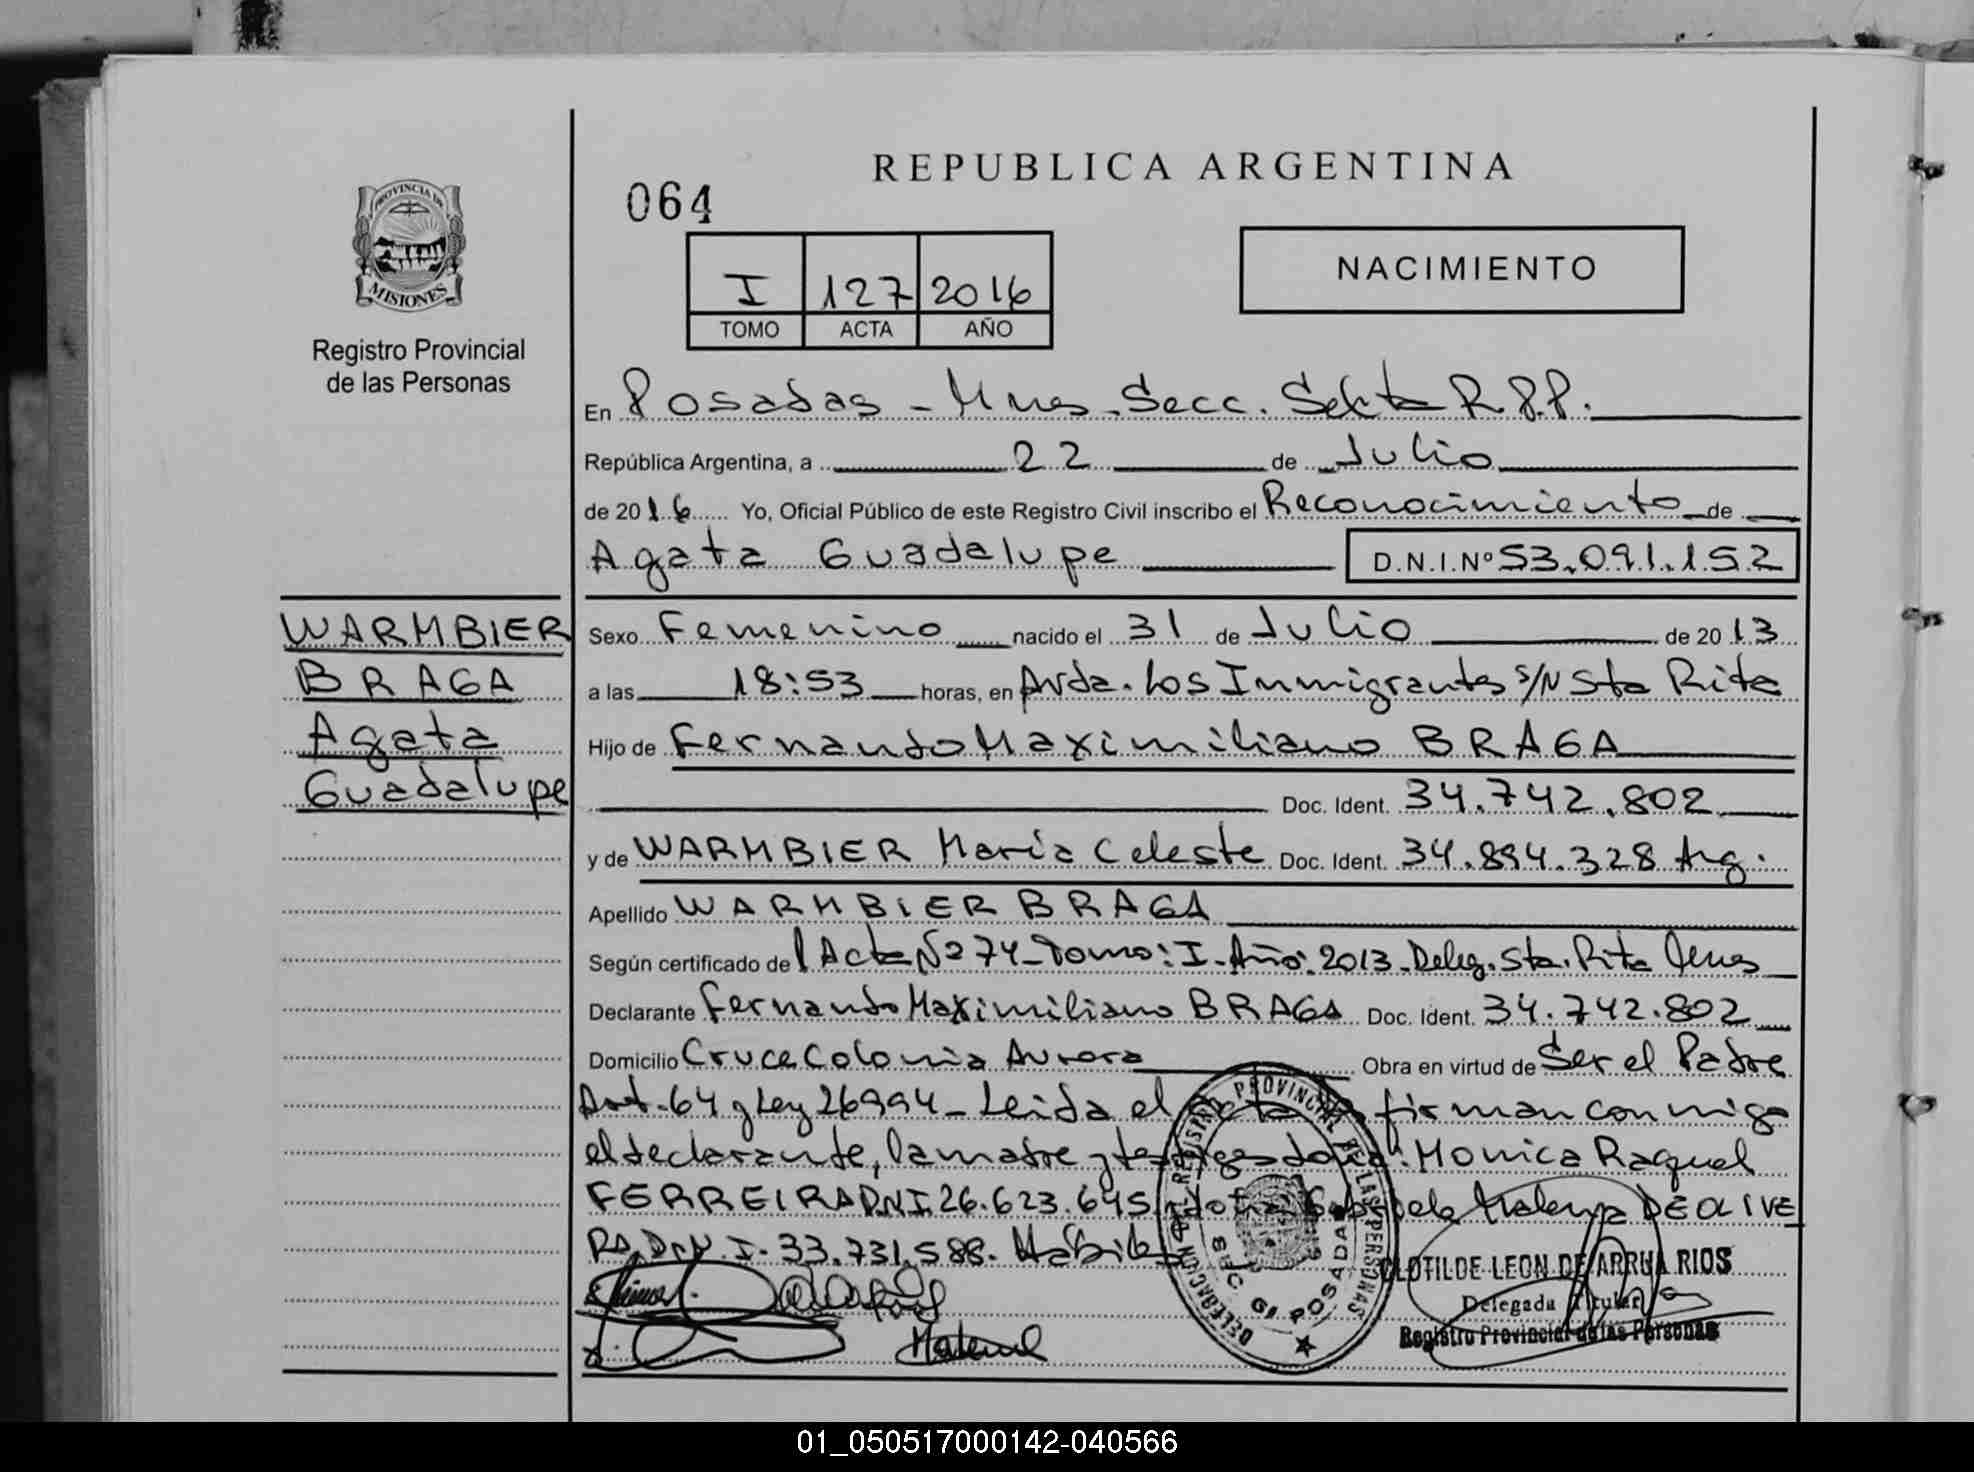 REPUBLICA ARGENTINA
064
PROVINCIA DE
MISIONES
Registro Provincial
de las Personas
I 127 2016
TOMO ACTA AÑO
NACIMIENTO
En Posadas - Mnes. Secc. Sexta R.P.P.
República Argentina, a 22 de Julio
de 2016 Yo, Oficial Público de este Registro Civil inscribo el Reconocimiento de
Agata Guadalupe D.N.I.Nº 53.091.152
WARMBIER
BRAGA
Agata
Guadalupe
Sexo Femenino nacido el 31 de Julio de 2013
a las 18:53 horas, en Avda. Los Inmigrantes s/N Sta Rita
Hijo de Fernando Maximiliano BRAGA
Doc. Ident. 34.742.802
y de WARMBIER María Celeste Doc. Ident. 34.894.328 Arg.
Apellido WARMBIER BRAGA
Según certificado de Acta Nº 274 - Tomo: I - Año: 2013. Deleg. Sta. Rita
Declarante Fernando Maximiliano BRAGA Doc. Ident. 34.742.802
Domicilio Cruce Colonia Aurora Obra en virtud de Ser el Padre
Art. 64 y Ley 26994 - Leida el firman conmigo
el declarante, la madre y testigos Monica Raquel
FERREIRA D.N.I. 26.623.645 Gabriela DE OLIVE
RA D.N.I. 33.731.588. Habiles
DELEGACION DEL REGISTRO PROVINCIAL DE LAS PERSONAS
SEC. 6ª POSADAS
CLOTILDE LEON DE ARRUA RIOS
Delegada Titular
Registro Provincial de las Personas
01_050517000142-040566